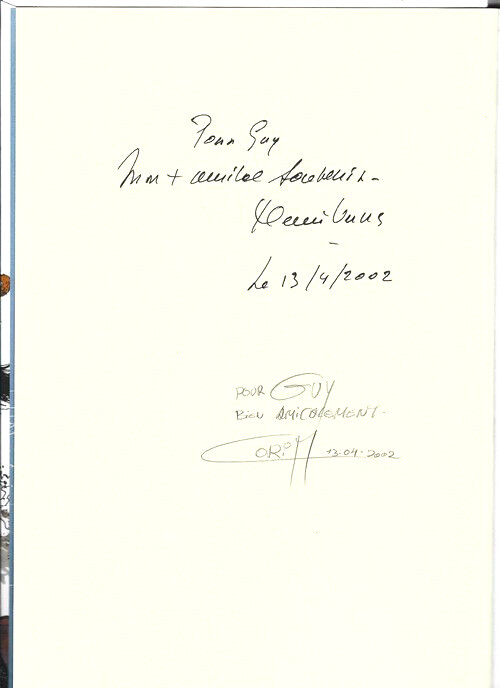 Pour Guy
Mon + amical souvenir -
Le 13/4/2002
POUR GUY
BIEN AMICALEMENT.
CORiA 13.04.2002